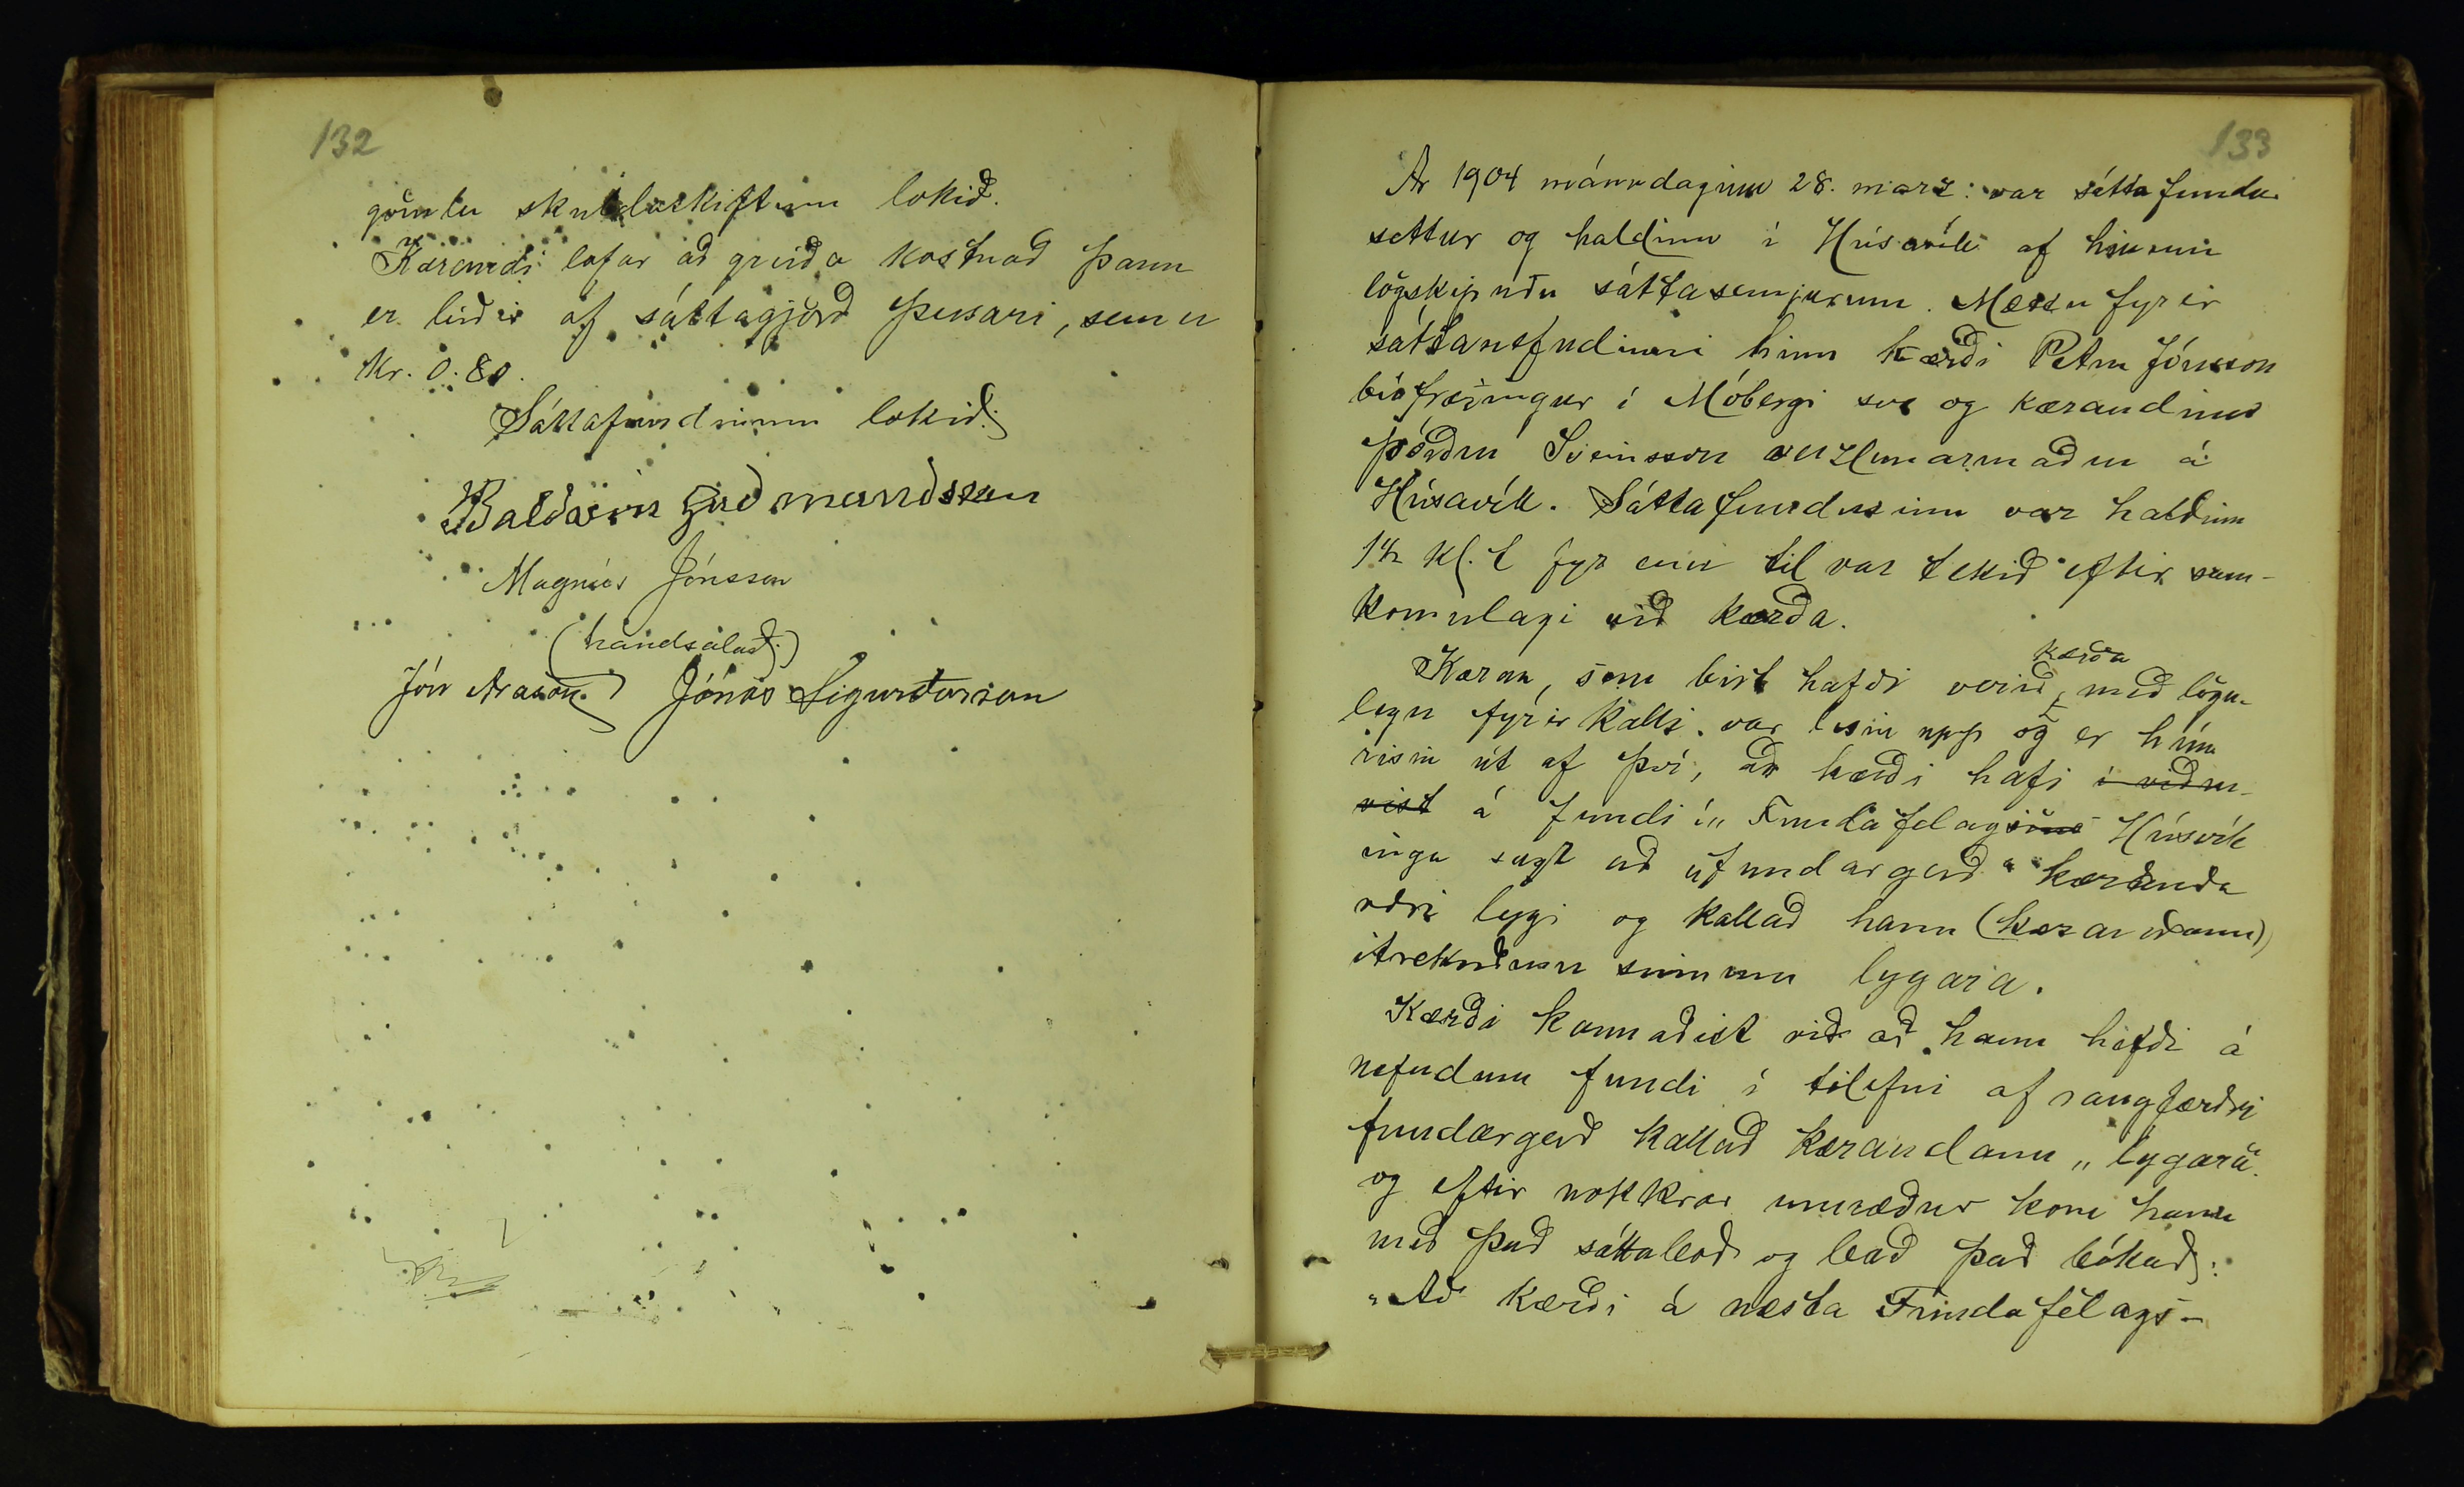 132
gömlu skuldaskiftum lokið.
Kærandi lofar að greiða kostnað þann
er leiðir af sáttagjörð þessari, sem er
Kr. 0.80.
Sáttafundinum lokið.
Baldvin Guðmundsson
Magnús Jónsson
(handsalað.)
Jón Arason. Jónas Sigurdsson
133
Ár 1904 mánudaginn 28. marz: var sáttafundur
settur og haldinn í Húsavík af hinum
lögskipuðu sáttasemjurum. Mættu fyrir
sáttanefndinni hinn kærði Petur Jónsson
búfræðingur í Móbergi svo og kærandinn
Þórður Sveinsson verzlunarmaður á
Húsavík. Sáttafundurinn var haldinn
1½ kl. t fyr enn til var tekið eftir sam-
komulagi við kærða.
kærða
Kæran, sem birt hafði verið, með lögu-
legu fyrirkalli var lesin upp og er hún
risin út af því, að kærði hafi í viður-
vist á fundi í „Fundafelagsins Húsvík
inga sagt að „fundargerð" kæranda
væri lygi og kallað hann (kærandann)
ítrekuðum sinnum lygara.
Kærði kannaðist við að hann hefði á
nefndum fundi í tilefni af rangfærðri
fundargerð kallað kærandann „lygara".
og eftir nokkrar umræður kom hann
með það sáttaboð og bað það bókað:
„Að kærði á næsta Fundafélags-